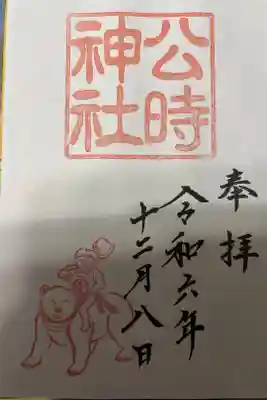 公時
神社
奉拝
令和六年
十二月八日